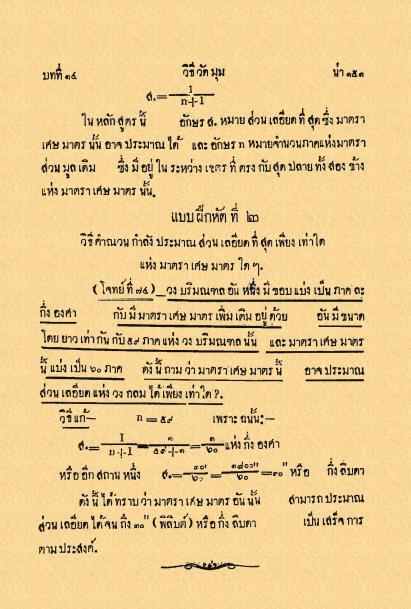 บทที่ ๑๔ วิธี วัด มุม น่า ๑๕๑
ส.= 1
n+1
ใน หลัก สูตร นี้ อักษร ส. หมาย ส่วน เลอียด ที่ สุด ซึ่ง มาตรา
เศษ มาตร นั้น อาจ ประมาณ ได้ และ อักษร n หมายจำนวนภาคแห่งมาตรา
ส่วน มูล เดิม ซึ่ง มี อยู่ ใน ระหว่าง เขตร ที่ ตรง กับ สุด ปลาย ทั้ง สอง ข้าง
แห่ง มาตรา เศษ มาตร นั้น.
แบบ ฝึกหัด ที่ ๒
วิธี คำณวน กำลัง ประมาณ ส่วน เลอียด ที่ สุด เพียง เท่าใด
แห่ง มาตรา เศษ มาตร ใด ๆ.
( โจทย์ ที่ ๗๔ ) _ วง บริมณฑล อัน หนึ่ง มี ขอบ แบ่ง เป็น ภาค ละ
กึ่ง องศา กับ มี มาตรา เศษ มาตร เพิ่ม เติม อยู่ ด้วย อัน มี ขนาด
โดย ยาว เท่า กัน กับ ๕๙ ภาค แห่ง วง บริมณฑล นั้น และ มาตรา เศษ มาตร
นี้ แบ่ง เป็น ๖๐ ภาค ดัง นี้ ถาม ว่า มาตรา เศษ มาตร นี้ อาจ ประมาณ
ส่วน เลอียด แห่ง วง กลม ได้ เพียง เท่า ใด ?.
วิธี แก้— n = ๕๙ เพราะ ฉนั้น:—
ส.= 1/n+1 = ๑/๕๙+๑ = ๑/๖๐ แห่ง กึ่ง องศา
หรือ อีก สถาน หนึ่ง ส.= ๓๐'/๖๐ = ๑๘๐๐"/๖๐ = ๓๐" หรือ กึ่ง ลิบดา
ดัง นี้ ได้ ทราบ ว่า มาตรา เศษ มาตร อัน นั้น สามารถ ประมาณ
ส่วน เลอียด ได้ จน ถึง ๓๐" ( พิลิบต์ ) หรือ กึ่ง ลิบดา เป็น เสร็จ การ
ตาม ประสงค์.